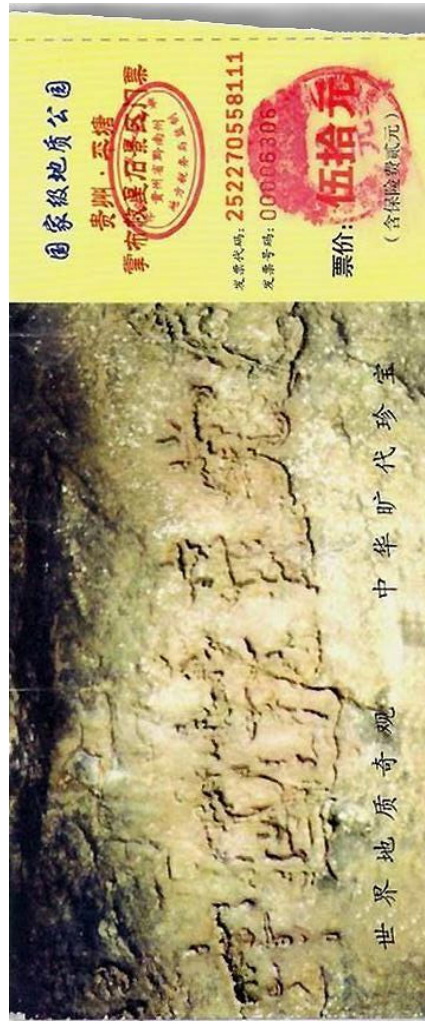 国家级地质公园
贵州·平塘
掌布救星石景区门票
贵州省黔南州
地方税务局监制
发票代码:252270558111
发票号码:00006306
票价:伍拾元
(含保险费贰元)
中國共产党亡
世界地质奇观 中华旷代珍宝